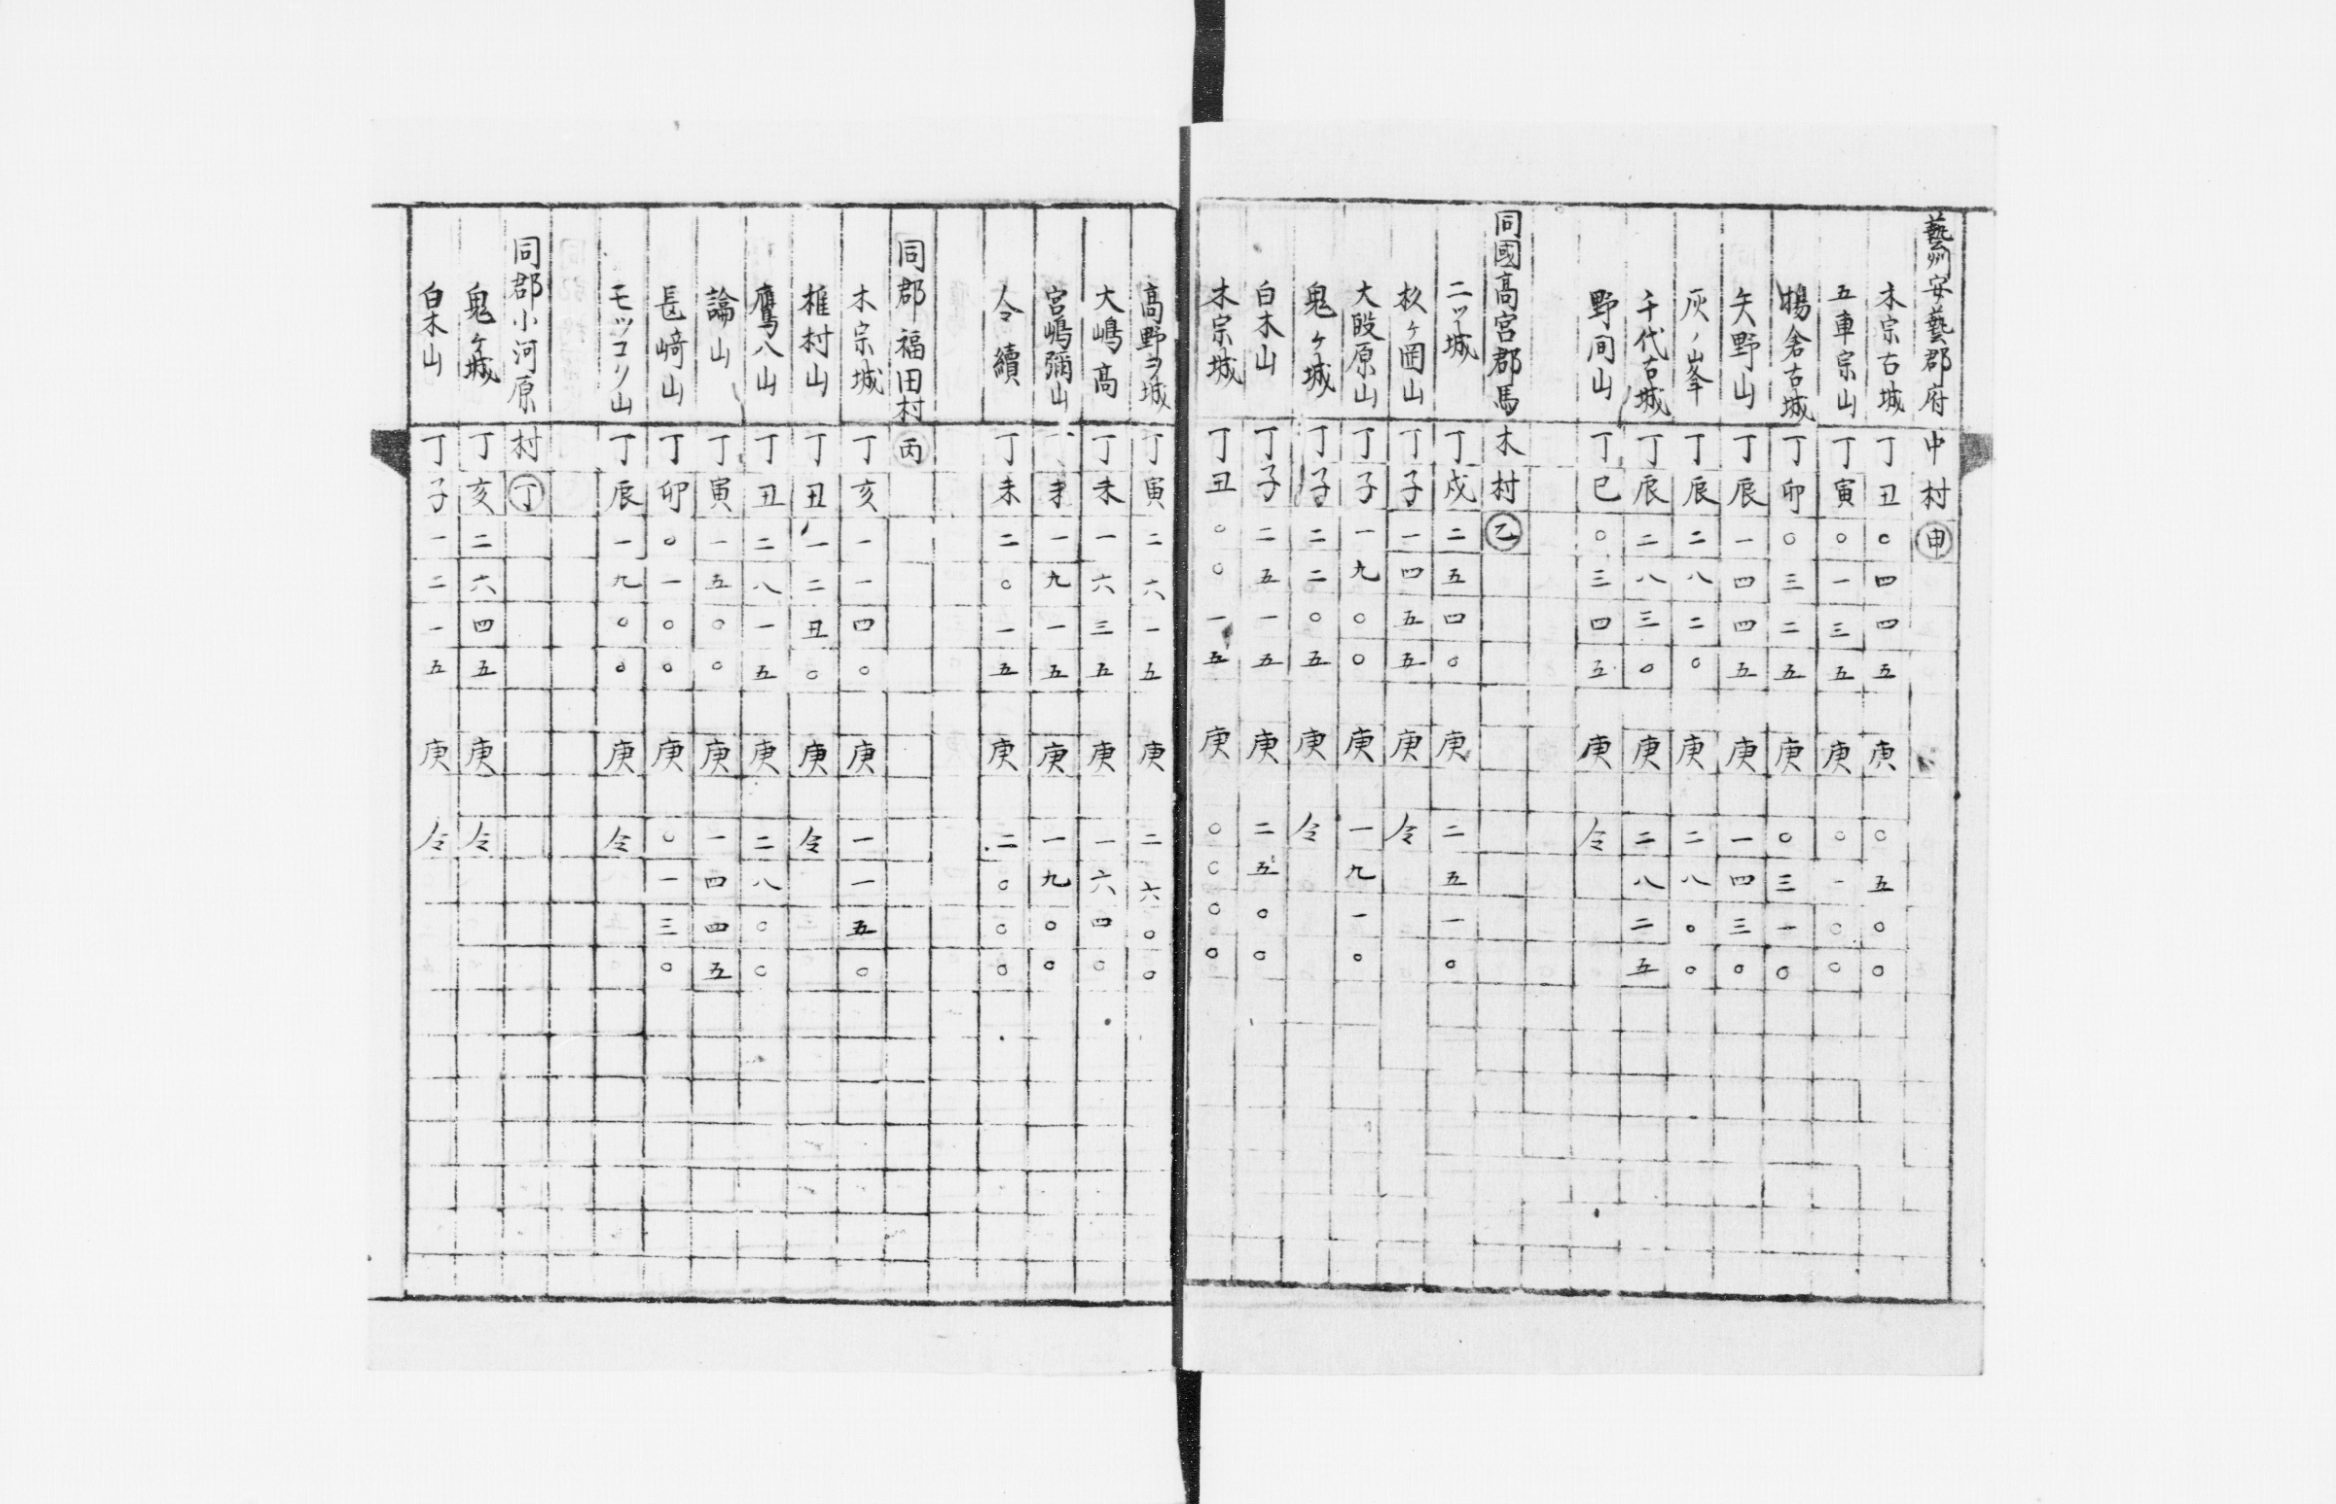 藝州安藝郡府中村㊥申
木宗古城丁丑〇四四五庚〇五〇〇
五車宗山丁寅〇一三五庚〇一〇〇
楊倉古城丁卯〇三二五庚〇三一〇
矢野山丁辰一四四五庚一四三〇
灰ノ峯丁辰二八二〇庚二八〇〇
千代古城丁辰二八三〇庚二八二五
野间山丁巳〇三四五庚仝
同國高宮郡馬木村乙
二ッ城丁戌二五四〇庚二五一〇
杦ヶ罡山丁子一四五五庚仝
大段原山丁子一九〇〇庚一九一〇
鬼ヶ城丁子二二〇五庚仝
白木山丁子二五一五庚二五〇〇
木宗城丁丑〇〇一五庚〇〇〇〇
高野ヲ城丁寅二六一五庚二六〇〇
大嶋高丁未一六三五庚一六四〇
宮嶋彌山丁未一九一五庚一九〇〇
仝續丁未二〇一五庚二〇〇〇
同郡福田村丙
木宗城丁亥一一四〇庚一一五〇
椎村山丁丑一二丑〇庚仝
鷹八山丁丑二八一五庚二八〇〇
論山丁寅一五〇〇庚一四四五
長﨑山丁卯〇一〇〇庚〇一三〇
モッコリ山丁辰一九〇〇庚仝
同郡小河原村丁
鬼ヶ城丁亥二六四五庚仝
白木山丁子一二一五庚仝